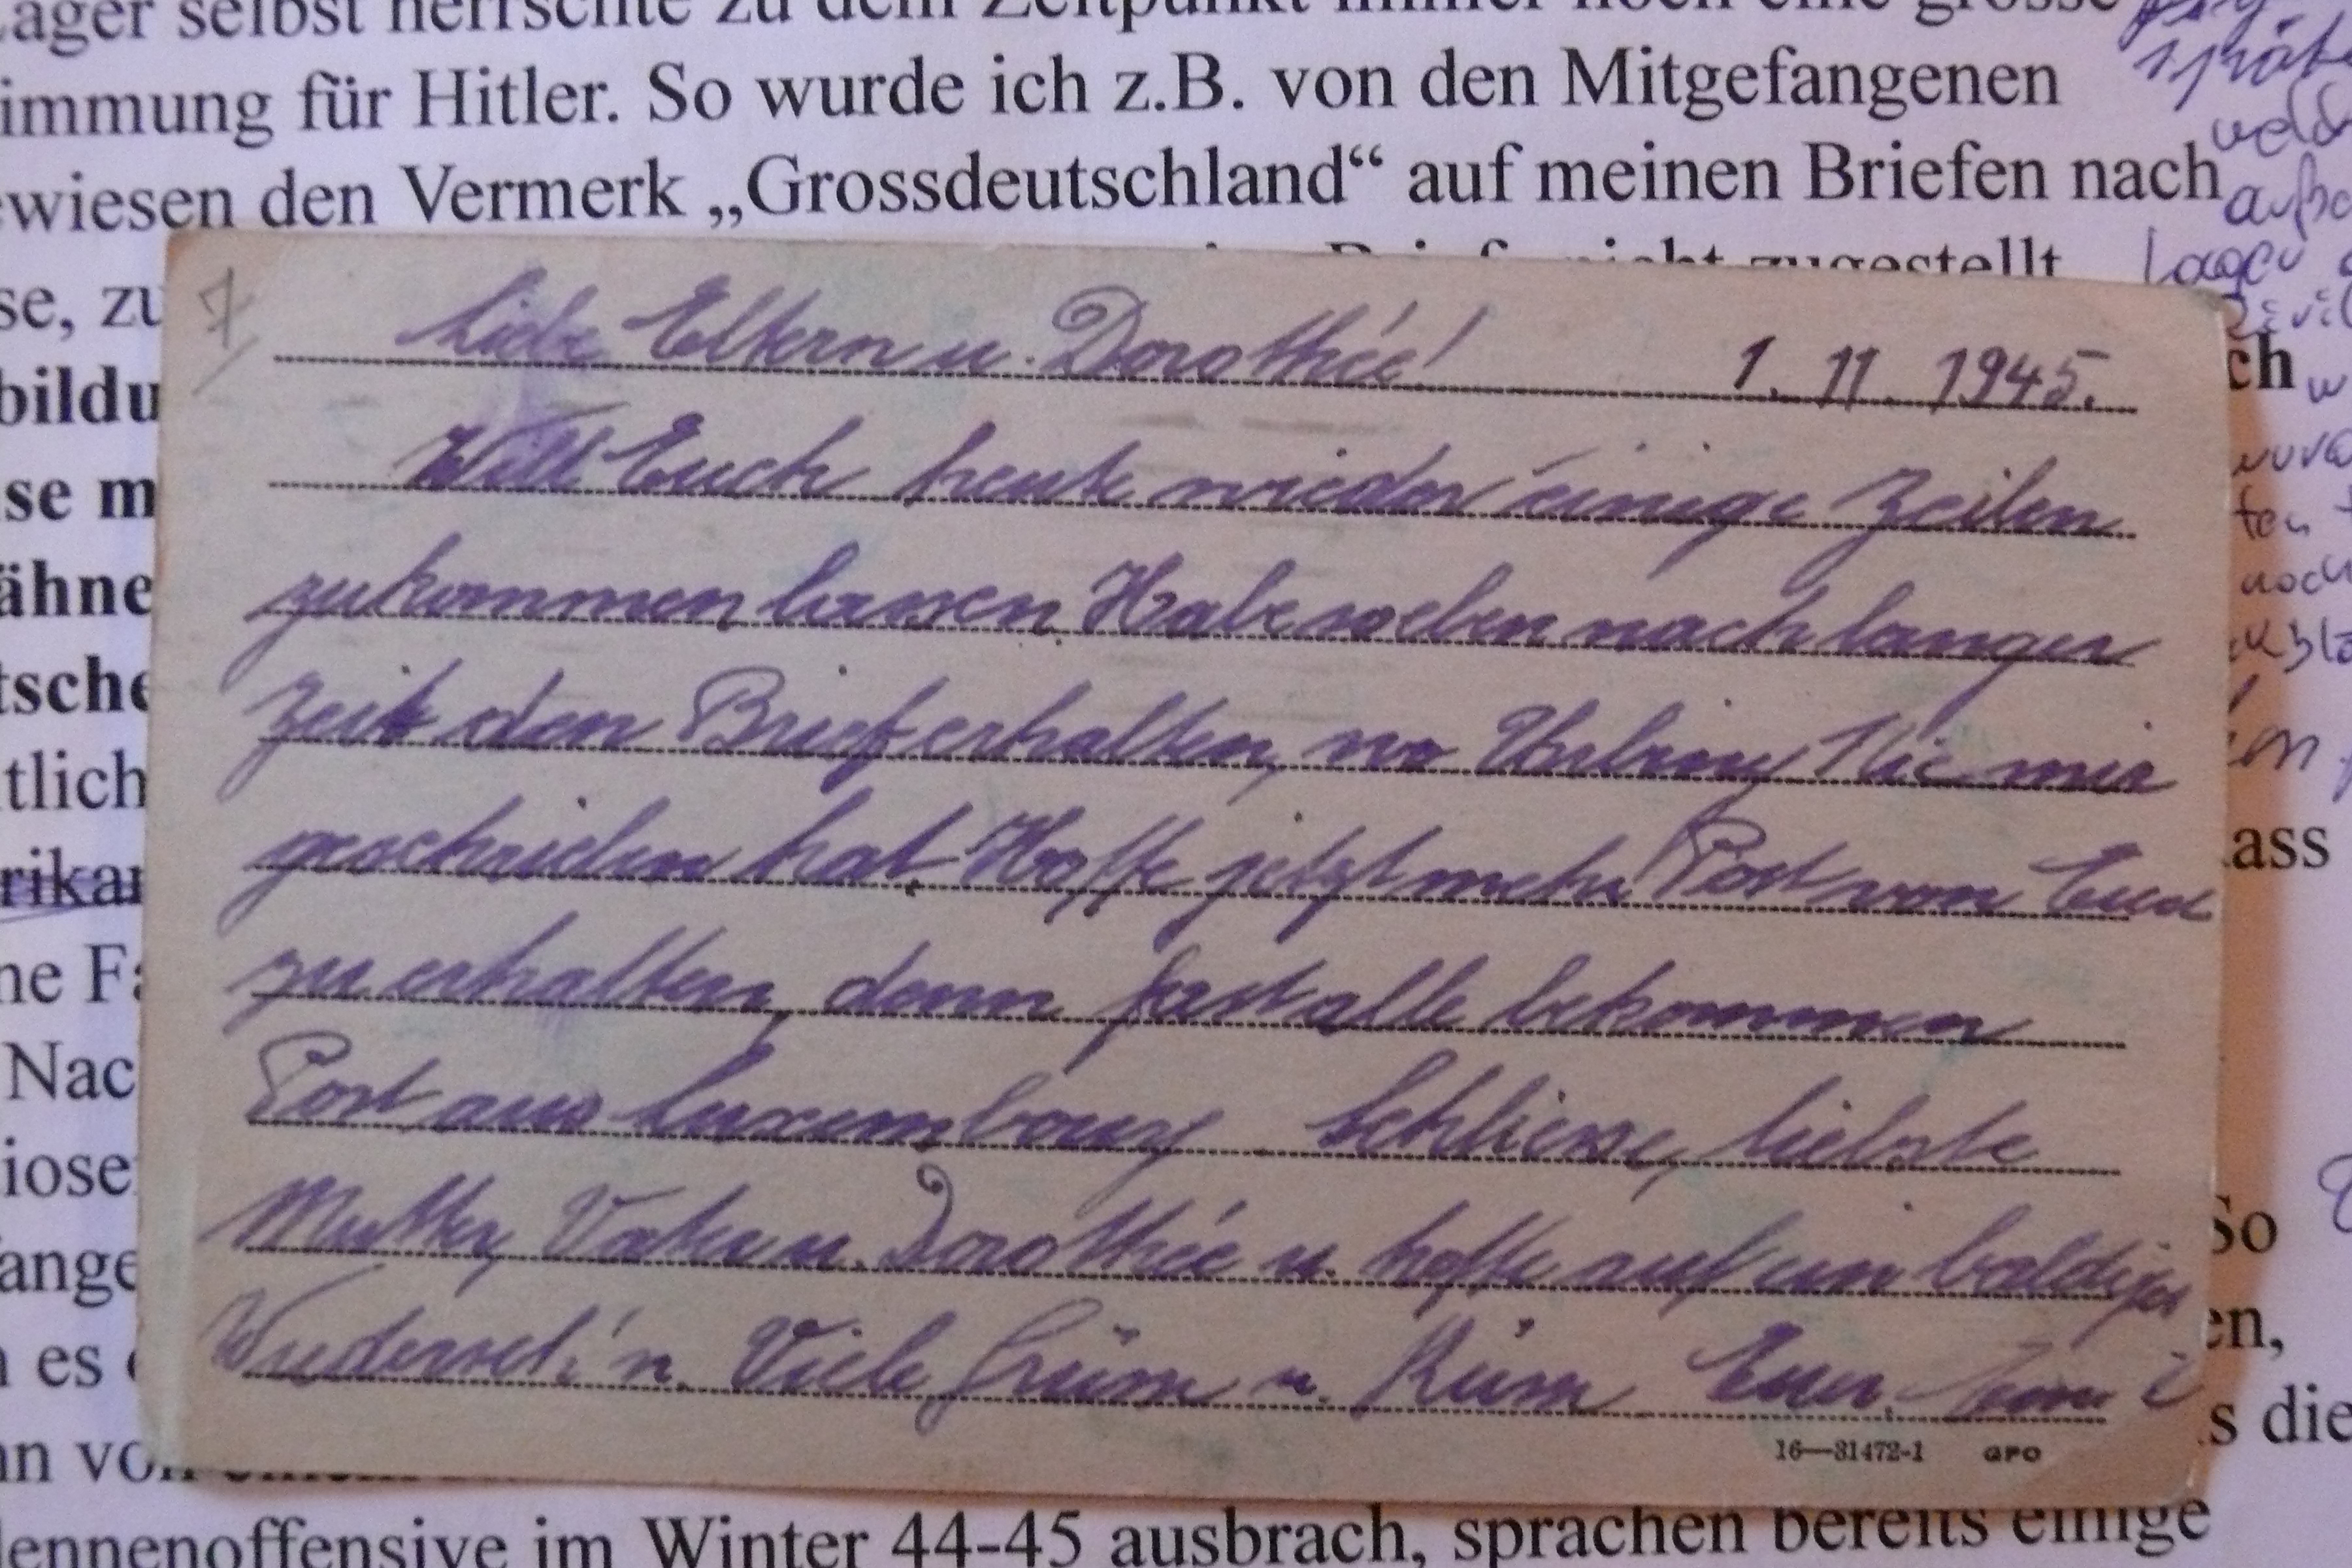 Lager selbst herrschte zu dem Zeitpunkt immer noch eine grosse
immung für Hitler. So wurde ich z.B. von den Mitgefangenen
ewiesen den Vermerk „Grossdeutschland“ auf meinen Briefen nach
se, zu nicht zugestellt
7
Liebe Eltern u. Dorothée! 1. 11. 1945.
Will Euch heute wieder einige Zeilen
zukommen lassen. Habe soeben nach langer
Zeit den Brief erhalten, wo mir
geschrieben hat. Hoffe jetzt mehr Post von Euch
zu erhalten, denn fast alle bekommen
Post aus Luxembourg. Schliesse, liebste
Mutter, Vater u. Dorothée u. hoffe auf ein baldiges
Wiederseh'n. Viele Grüsse u. Küsse Euer
16—31472-1 GPO
bildu ch
se m
ähne
tsche
tlich
rikan ass
ne Fa
Nac
iose
ange So
n es en,
nn vo s die
dennenoffensive im Winter 44-45 ausbrach, sprachen bereits einige